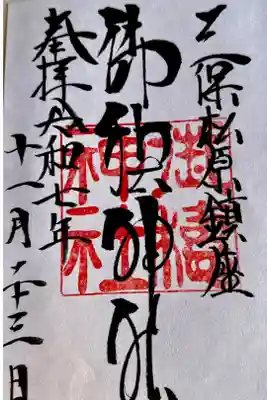 三保松原鎮座
御穂神社
奉拝 令和七年
十一月二十三日
御穂
神社